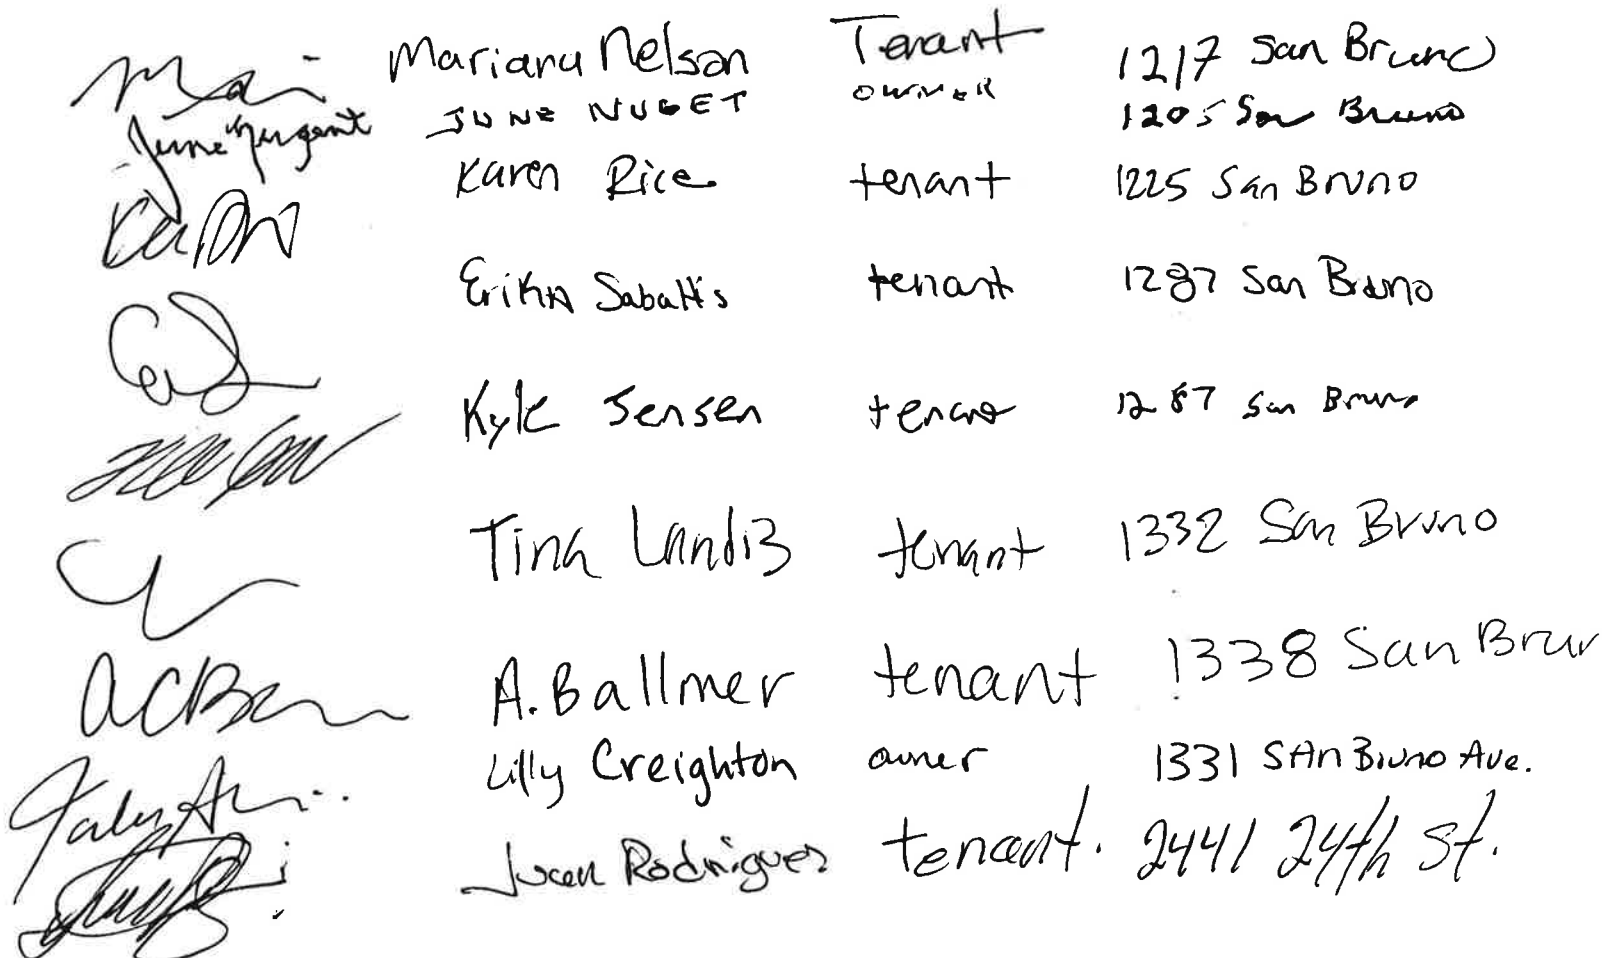 Mariana Nelson Tenant 1217 San Bruno
June Nugent JUNE NUGET OWNER 1205 San Bruno
Karen Rice tenant 1225 San Bruno
Erika Sabattis tenant 1287 San Bruno
Kyle Jensen tenant 1287 San Bruno
Tina Landis tenant 1332 San Bruno
A. Ballmer tenant 1338 San Brun
Lilly Creighton owner 1331 SAn Bruno Ave.
Juan Rodriguez tenant. 2441 24th St.